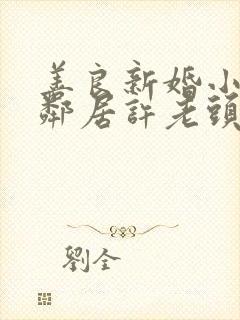 美良新婚小
鄰居許老頭
劉全